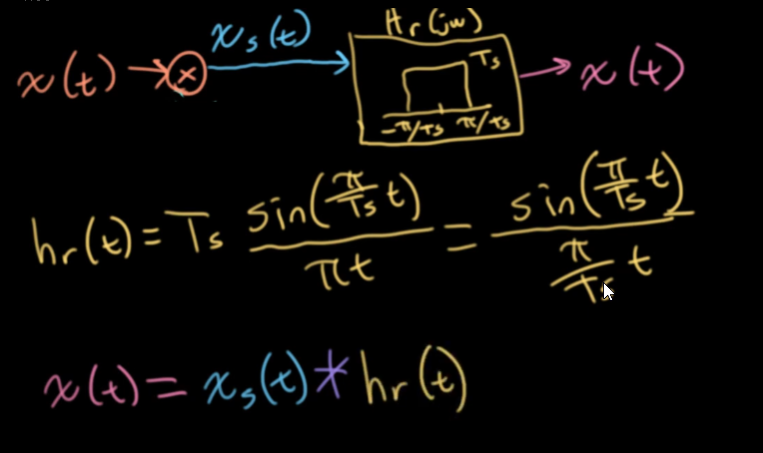 x(t) → ⊗ x_s(t) → H_r(jω) → x(t)
T_s
-π/T_s π/T_s
h_r(t) = T_s sin(π/T_s t) / πt = sin(π/T_s t) / (π/T_s t)
x(t) = x_s(t) * h_r(t)